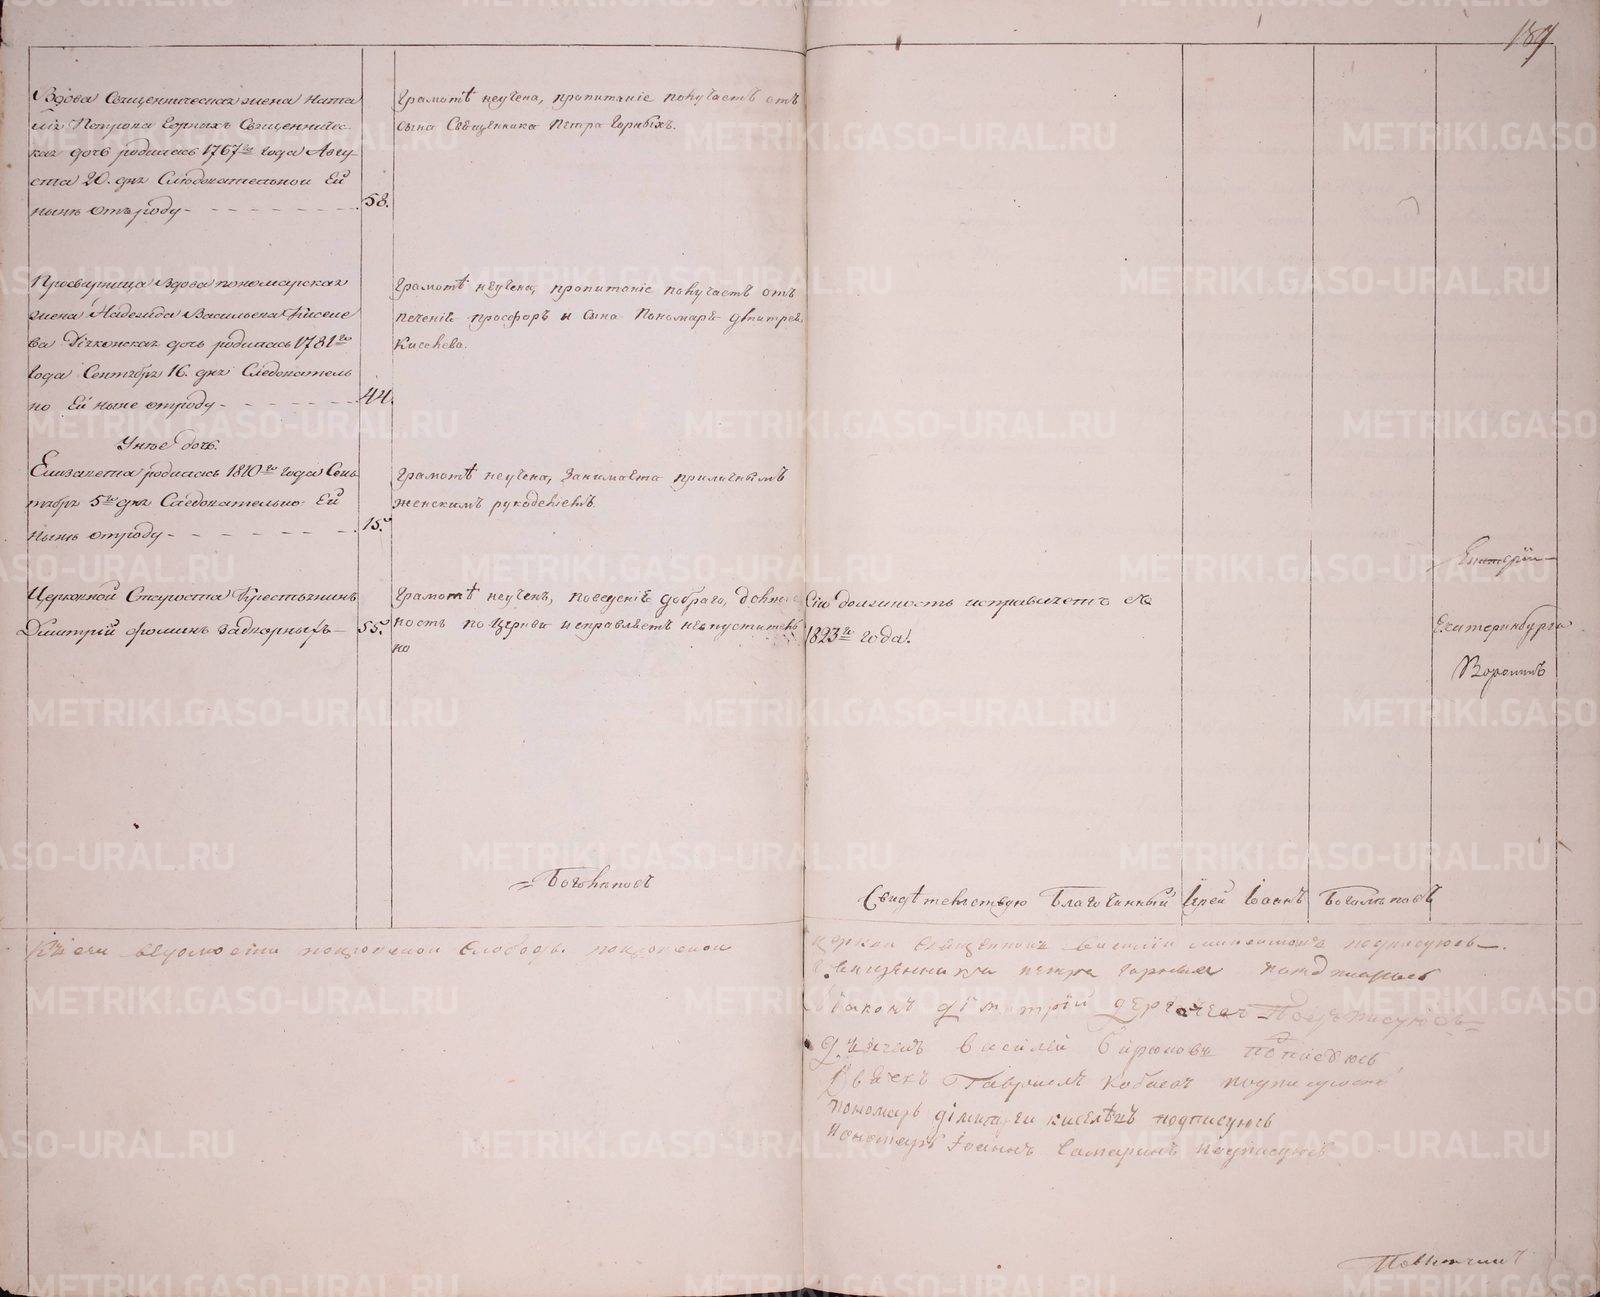 189
Вдова Священническая жена Ната
лія Петрова Горныхъ Священничес
кая дочь родилась 1767го года Авгу
ста 20. дня Следовательно Ей
нынѣ отъ роду - 58.
Грамотѣ неучена, пропитаніе получаетъ отъ
сына Священника Петра Горныхъ.
Просвирница Вдова пономарская
жена Надежда Васильева Киселе
ва Дьячковская дочь родилась 1781го
года Сентября 16. дня Следователь
но Ей ныне отроду - 44.
Грамотѣ неучена, пропитаніе получаетъ отъ
печенія просфоръ и сына Пономаря Дмитрея
Киселева.
У нее дочь.
Елизавета родилась 1810го года Сень
тября 5го дня Следовательно Ей
нынѣ отроду - 15.
Грамотѣ неучена, занимается приличнымъ
женскимъ рукоделіемъ.
Церковной Староста Крестьянинъ
Дмитрій Фоминъ Задворныхъ - 55.
Грамотѣ неученъ, поведенія добраго, должно
ность по Церкви исправляетъ неопуститель
но
Сію должность исправляетъ съ
1823го года.
Екатерин
Екатеринбурга
Воронинъ
Боголѣповъ
Свидѣтельствую Благочинный Іерей Іоаннъ Боголѣповъ
К сей ведомости покровской слободы покровской
церкви священникъ василій подписуюсь.
священник петръ горныхъ подписуюсь
Диаконъ димитрій подписуюсь
Дьячекъ василей бирюковъ подписуюсь
Дьячекъ Гавриилъ подписуюсь
Пономарь димитрей киселевъ подписуюсь
Пономарь Іоаннъ Самаринъ подписуюсь
METRIKI.GASO-URAL.RU